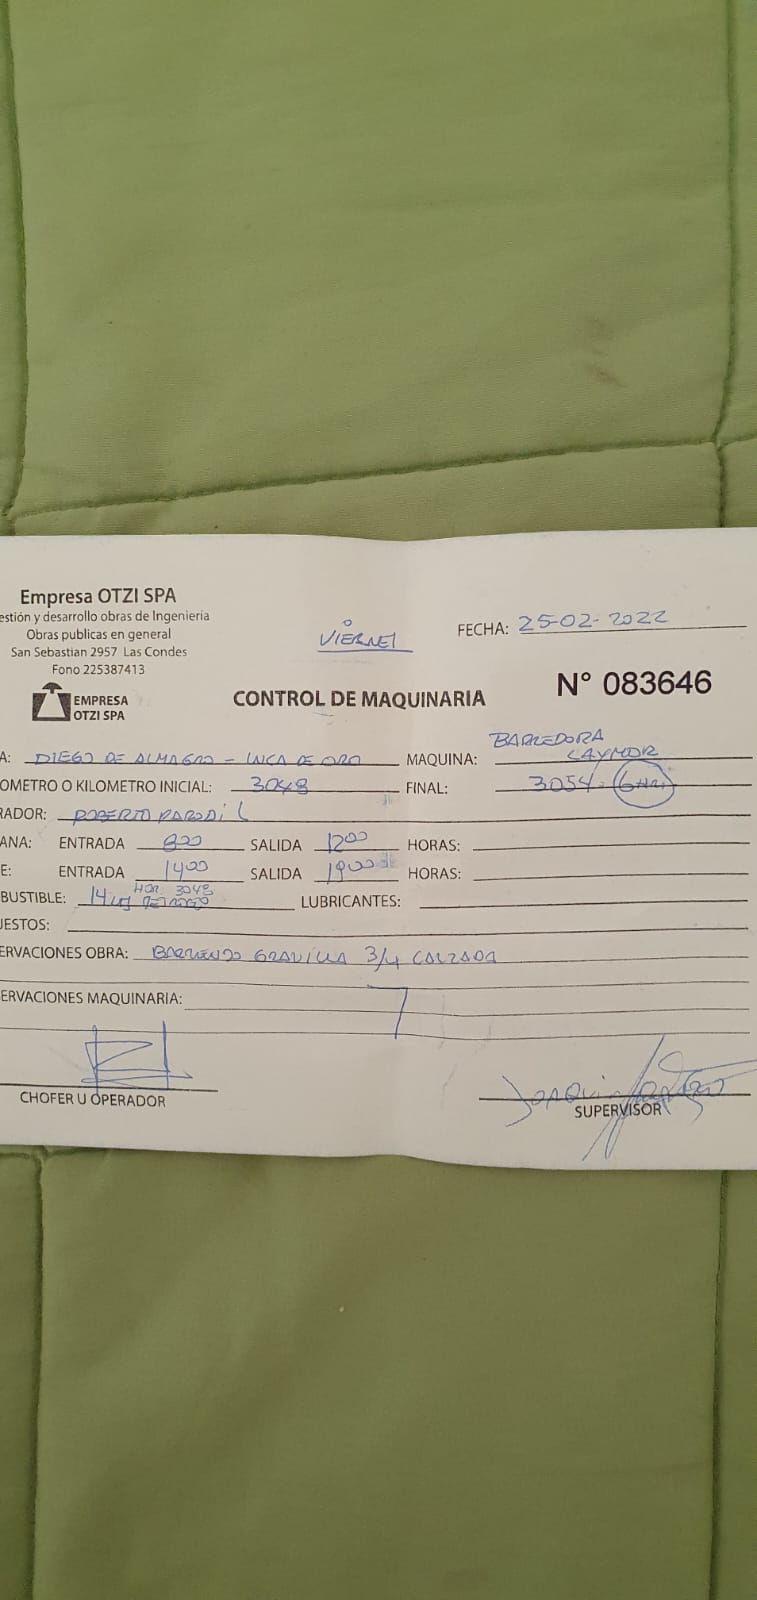 Empresa OTZI SPA
estión y desarrollo obras de Ingeniería
Obras publicas en general
San Sebastian 2957 Las Condes
Fono 225387413
EMPRESA
OTZI SPA
VIERNES
FECHA: 25-02-2022
CONTROL DE MAQUINARIA
N° 083646
A: DIEGO DE ALMAGRO - INCA DE ORO MAQUINA: BARREDORA
LAYMOR
OMETRO O KILOMETRO INICIAL: 3048 FINAL: 3054. 6 HRS
RADOR: ROBERTO PARODI
ANA: ENTRADA 800 SALIDA 1200 HORAS:
E: ENTRADA 1400 SALIDA 1900 HORAS:
BUSTIBLE: 14 HOR 3048 LUBRICANTES:
UESTOS:
ERVACIONES OBRA: BARRIENDO GRAVILLA 3/4 CALZADA
ERVACIONES MAQUINARIA:
CHOFER U OPERADOR
JOAQUIN
SUPERVISOR